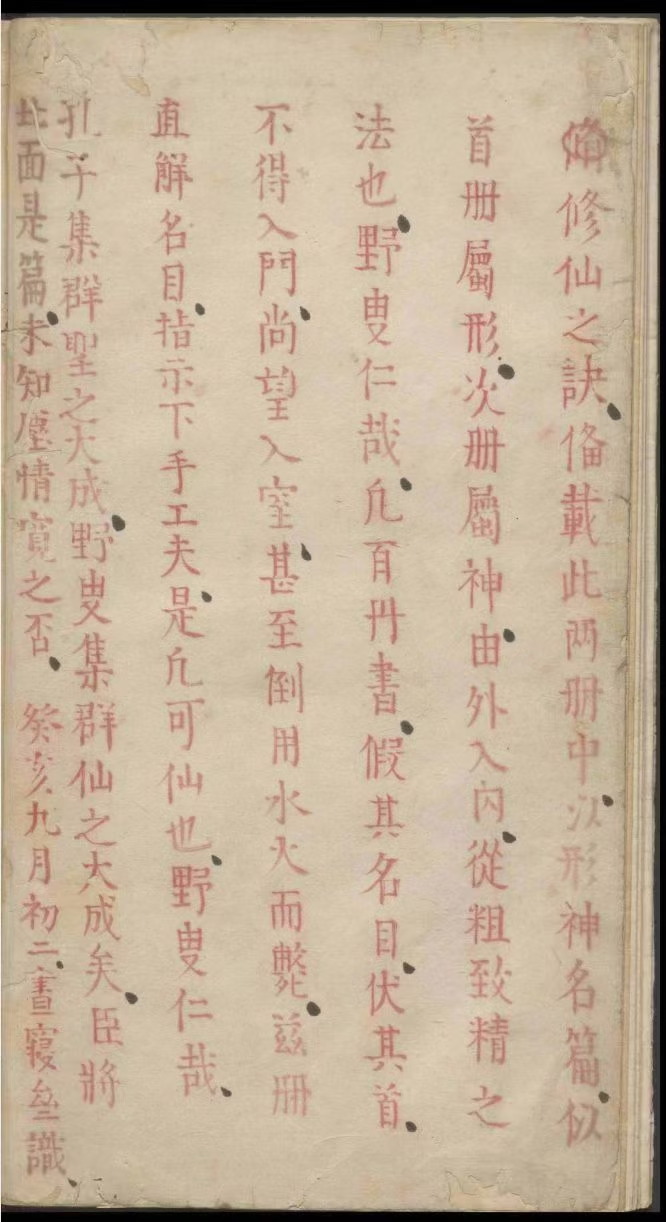 修仙之訣備載此兩册中以形神名篇似
首册屬形次册屬神由外入內從粗致精之
法也野叟仁哉凡百丹書假其名目伏其首
不得入門尚望入室甚至倒用水火而斃茲册
直解名目指示下手工夫是凡可仙也野叟仁哉
孔子集群聖之大成野叟集群仙之大成矣臣將
此面是篇未知塵情寬之否 癸亥九月初二晝寢垒識